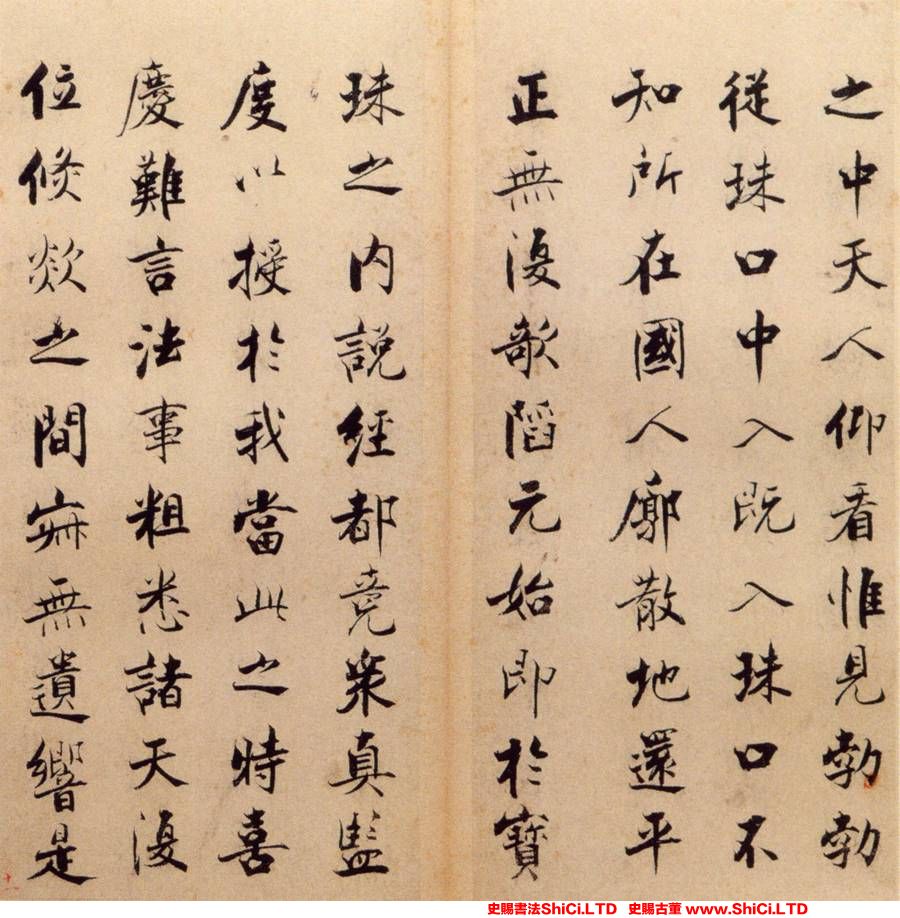 之中天人仰看惟見勃勃
從珠口中入既入珠口不
知所在國人廓散地還平
正無復欹陷元始即於寶
珠之内說經都竟衆真監
度以授於我當此之時喜
慶難言法事粗悉諸天復
位倏欻之間寂無遺響是
史賜書法ShiCi.LTD 史賜古董 www.ShiCi.LTD